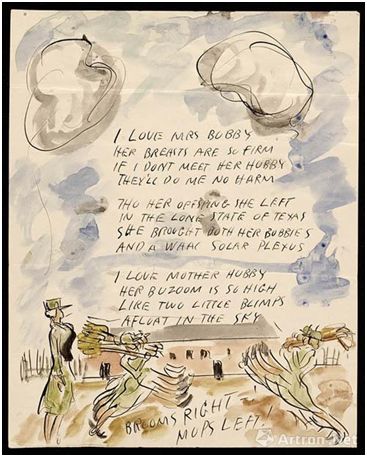 I LOVE MRS BUBBY
HER BREASTS ARE SO FIRM
IF I DONT MEET HER HUBBY
THEY'LL DO ME NO HARM
THO HER OFFSPING SHE LEFT
IN THE LONE STATE OF TEXAS
SHE BROUGHT BOTH HER BUBBIES
AND A WAAC SOLAR PLEXUS
I LOVE MOTHER HUBBY
HER BUZOOM IS SO HIGH
LIKE TWO LITTLE BLIMPS
AFLOAT IN THE SKY
BROOMS RIGHT
MOPS LEFT!
Artron.Net